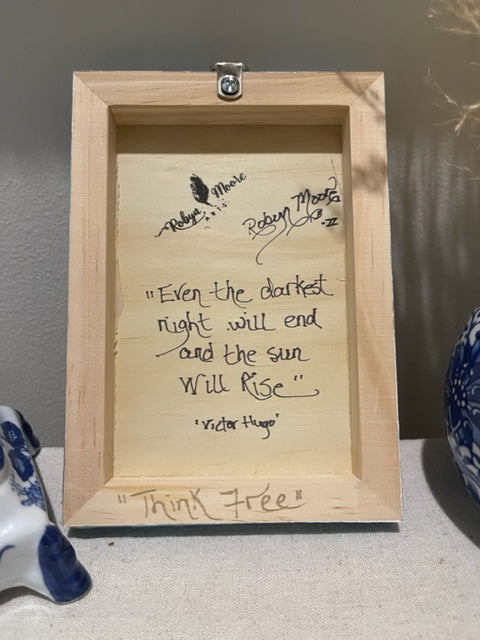 Robyn Moore
ARTS
Robyn Moore
"Even the darkest
night will end
and the sun
Will Rise"
'Victor Hugo'
"Think Free"